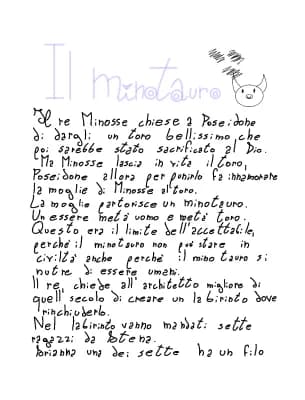 Il minotauro
Il re Minosse chiese a Poseidone
di dargli un toro bellissimo che
poi sarebbe stato sacrificato al Dio.
Ma Minosse lascia in vita il toro,
Poseidone allora per punirlo fa innamorare
la moglie di Minosse al toro.
La moglie partorisce un minotauro.
Un essere metá uomo e metá toro.
Questo era il limite dell'accettabile,
perché il minotauro non può stare in
civiltá anche perché il mino tauro si
nutre di essere umani.
Il re chiede all'architetto migliore di
quell'secolo di creare un labirinto dove
rinchiuderlo.
Nel labirinto vanno mandati sette
ragazzi da Atena.
Arianna una dei sette ha un filo